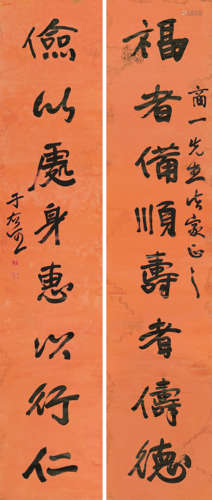 福者備順壽者儔德
商一先生法家正之
儉以處身惠以行仁
于右任